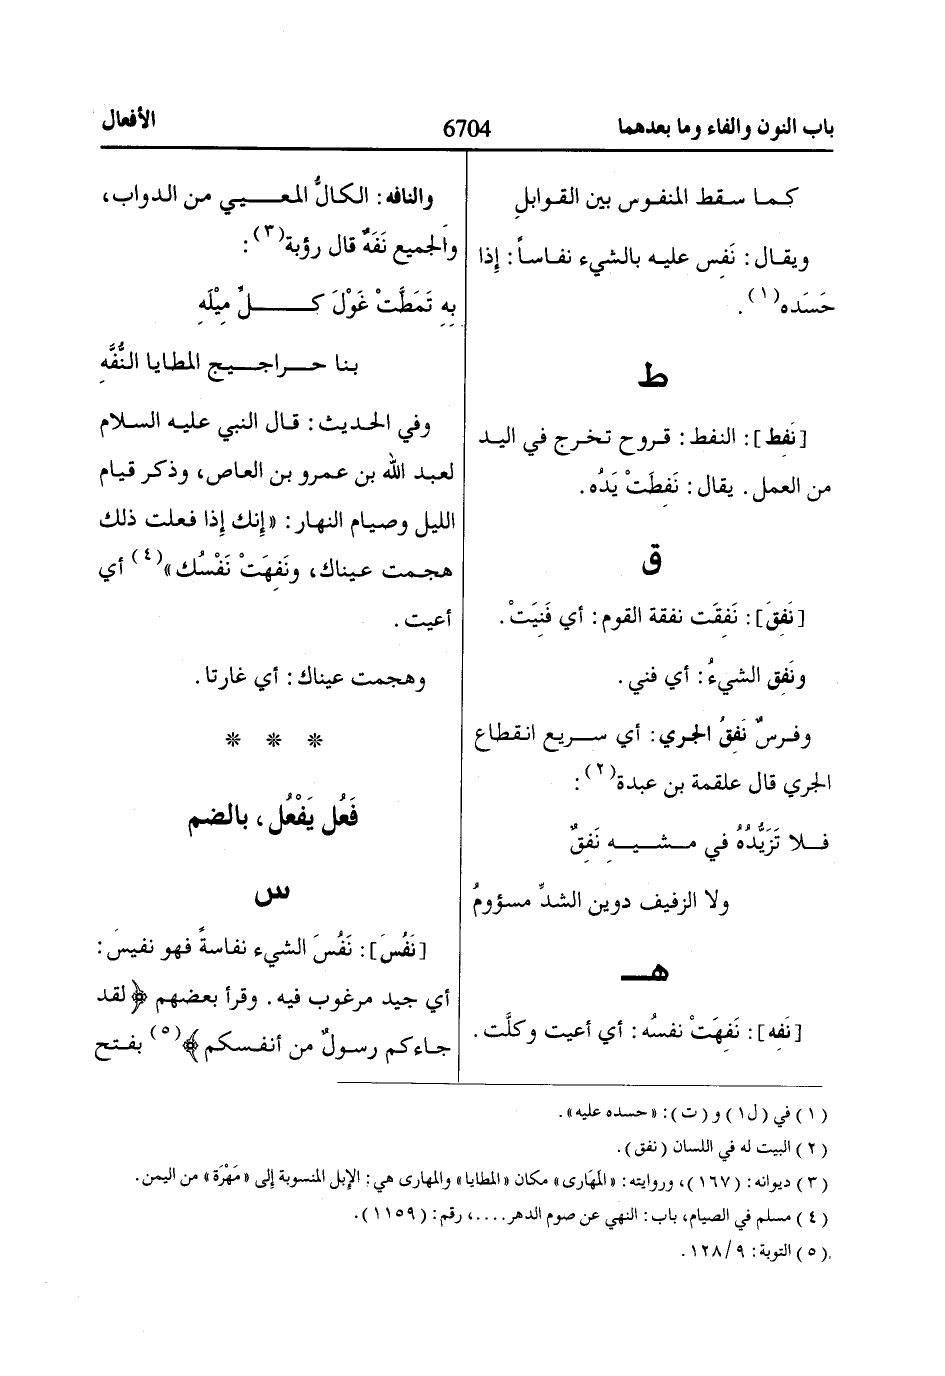 باب النون والفاء وما بعدهما 6704 الأفعال
كما سقط المنفوس بين القوابلِ
ويقال: نَفِس عليه بالشيء نفاساً: إذا
حَسَده(١).
ط
[نَفِط]: النفط: قروح تخرج في اليد
من العمل. يقال: نَفِطَتْ يَدُه.
ق
[نَفِقَ]: نَفِقَت نفقة القوم: أي فَنِيَتْ.
ونَفِق الشيءُ: أي فني.
وفرسٌ نَفِقُ الجري: أي سريع انقطاع
الجري قال علقمة بن عبدة(٢):
فلا تَزَيُّدُهُ في مشيهِ نَفِقٌ
ولا الزفيف دوين الشدِّ مسؤومُ
هـ
[نَفِه]: نَفِهَتْ نفسُه: أي أعيت وكلَّت.
والنافه: الكالُّ المعيي من الدواب،
والجميع نَفَهٌ قال رؤبة(٣):
بِهِ تَمَطَّتْ غَوْلَ كلِّ مِيْلَهِ
بنا حراجيج المطايا النُّفَّهِ
وفي الحديث: قال النبي عليه السلام
لعبد الله بن عمرو بن العاص، وذكر قيام
الليل وصيام النهار: «إنك إذا فعلت ذلك
هجمت عيناك، ونَفِهَتْ نَفْسُك»(٤) أي
أعيت.
وهجمت عيناك: أي غارتا.
* * *
فَعُل يَفْعُل، بالضم
س
[نَفُسَ]: نَفُسَ الشيء نفاسةً فهو نفيس:
أي جيد مرغوب فيه. وقرأ بعضهم ﴿لقد
جاءكم رسولٌ من أنفسكم﴾(٥) بفتح
(١) في (ل١) و(ت): «حسده عليه».
(٢) البيت له في اللسان (نفق).
(٣) ديوانه: (١٦٧)، وروايته: «المَهارى» مكان «المطايا» والمهارى هي: الإبل المنسوبة إلى «مَهْرَة» من اليمن.
(٤) مسلم في الصيام، باب: النهي عن صوم الدهر....، رقم: (١١٥٩).
(٥) التوبة: ٩/١٢٨.